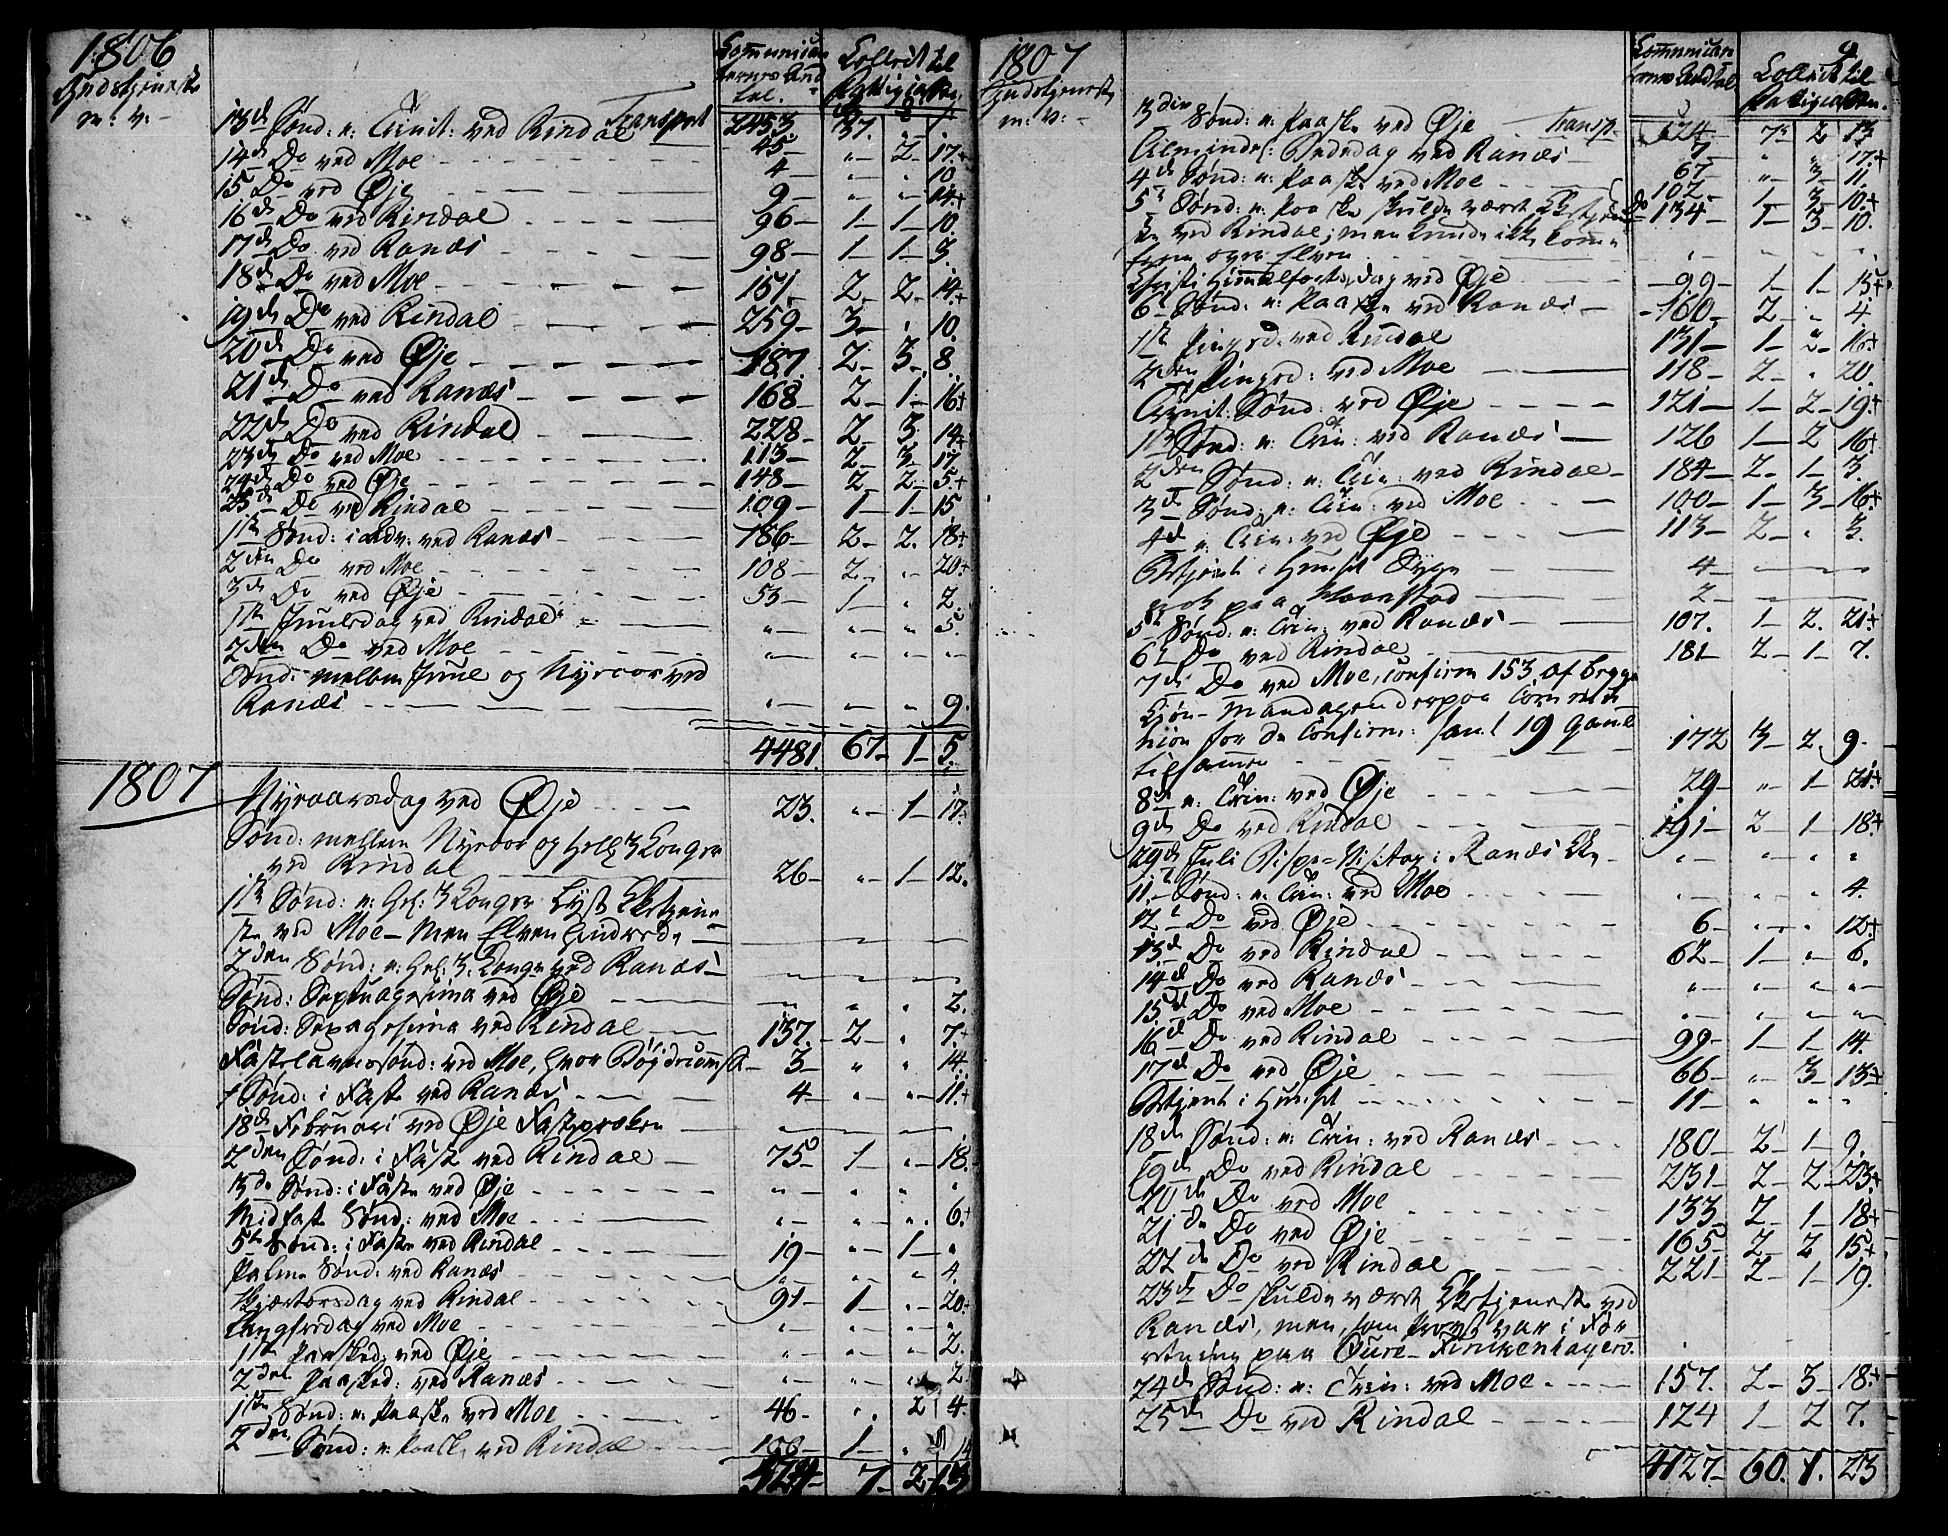 1806
Gudstjeneste
m: v: -
Communicanternes Antal.
Collect til Fattigcassen.
13de Sønd: e: Trinit: ved Rindal Transport 2453. 37. „ 1.
14de Do ved Moe 45 „ 2 17.+
15 Do ved Øje 4 „ „ 10
9 „ „ 14+
16de Do ved Rindal 96 1 1 10.
17de Do ved Ranæs 98 1 1 3.
18de Do ved Moe 151 2 2 14+
19de Do ved Rindal 259 3 „ 10.
20de Do ved Øje 187 2 3 8
21de Do ved Ranæs 168 2 1 16+
22de Do ved Rindal 228 2 3 14+
23de Do ved Moe 113 2 3 17
24de Do ved Øje 148 2 2 5+
25de Do ved Rindal 109 1 1 15
1ste Sønd: i Adv: ved Ranæs 186 2 2. 18+
2den Do ved Moe 108 2 „ 20+
3de Do ved Øje 53 1 „ 2
1ste Juuledag ved Rindal „ „ „ 5.
2den Do ved Moe „ „ „ „
Sønd: mellem Juul og Nyraar ved
Ranæs „ „ „ 9.
4481. 67 1 5.
1807
Nyraarsdag ved Øje 23. „ 1 17.
Sønd: mellem Nyraar og Hell: 3 Konger
ved Rindal 26 „ 1 12.
1ste Sønd: e: Hel: 3 Konger lyst Gudstjene
ste ved Moe - men Elven hindrede
2den Sønd: e: Hel: 3. Konger ved Ranæs
Sønd: Septuagesima ved Øje „ „ 2.
Sønd: Sexagesima ved Rindal 137. 2 „ 7+
Fastelavnssønd: ved Moe, hvor 3 „ „ 14.
1 Sønd: i Faste ved Ranæs 4 „ „ 11.+
18de Februari ved Øje Fasteprøken
2den Sønd: i Faste ved Rindal 75 1 „ 18.
3de Sønd: i Faste ved Øje „ „ „ „
Midfaste Sønd: ved Moe „ „ „ 6.+
5te Sønd: i Faste ved Rindal 19 „ 1 „
Palme Sønd: ved Ranæs „ „ „ 4.
Skjærtorsdag ved Rindal 91 1 „ 20+
Langfredag ved Moe „ „ „ „
1ste Paasked: ved Øje „ „ „ 2.
2den Paasked: ved Ranæs „ „ „ 2
1ste Sønd: e: Paaske ved Moe 46 „ 2 4
2den Sønd: e: Paaske ved Rindal 1 „ 14
7 2 13
1807
Gudstjeneste
m: v: -
Communicanternes Antal
9
Collect til Fattigcassen.
3die Sønd: e: Paaske ved Øje Transp 7 2 13
Almindel: Bededag ved Ranæs 7 „ „ 17+
4de Sønd: e: Paaske ved Moe 67 „ 3 11.
107 1 3 10+
5te Sønd: e: Paaske skulde været Gudstjene Do 134 1 3 10.
ste ved Rindal; men kunde ikke komme
frem over Elven „ „ „ „
Christi Himmelfarts dag ved Øje 99 1 1 15+
6te Sønd: e: Paaske ved Ranæs 160 2 „ 4.
1ste Pingsd: ved Rindal 131 1 2 16+
2den Pingsd: ved Moe 118 2 „ 20
Trinit: Sønd: ved Øje 121 1 2 19+
1ste Sønd: e: Trin: ved Ranæs 126 1 2 16+
2den Sønd: e: Trin: ved Rindal 184 2 1 3.
3de Sønd: e: Trin: ved Moe 100 1 3 16+
4de e: Trin: ved Øje 113 2 „ 3.
Betjent i Huuset Syge 4
paa Haanstad 2
5te Sønd: e: Trin: ved Ranæs 107. 1 2. 21+
6te Do ved Rindal 181 2 1 7.
7de Do ved Moe, confirm 153 af begge
Kjøn - Mandagen derpaa Commu
nion for de Confirm: samt 19 gamle
tilsamen 172 3 2 9.
8de e: Trin: ved Øje 29 „ 1 21+
9de Do ved Rindal 191 2 1 18+
29de Juli Bispe-Visitaz i Ranæs „ „ „ „
11te Sønd: e: Trin: ved Moe „ „ „ 4.
12te Do ved Øje 6 „ „ 12+
13de Do ved Rindal 62 1 „ 6.
14de Do ved Ranæs „ „ „ „
15de Do ved Moe „ „ „ „
16de Do ved Rindal 99 1 1 14.
17de Do ved Øje 66 „ 3 13+
Betjent i Huuset 11 „ „ „
18de Sønd: e: Trin: ved Ranæs 180 2 1 9.
19de Do ved Rindal 231 2 2 23+
20de Do ved Moe 133 2 1 18+
21de Do ved Øje 165 2 2 15+
22de Do ved Rindal 221 2 1 19.
23de Do skulde været Gudstjeneste ved
Ranæs, men, som Provst var i For
retning paa Øure -
24de Sønd: e: Trin: ved Moe 157. 2 3 18+
25de Do ved Rindal 124 1 2 7.
4127 60. 1. 23